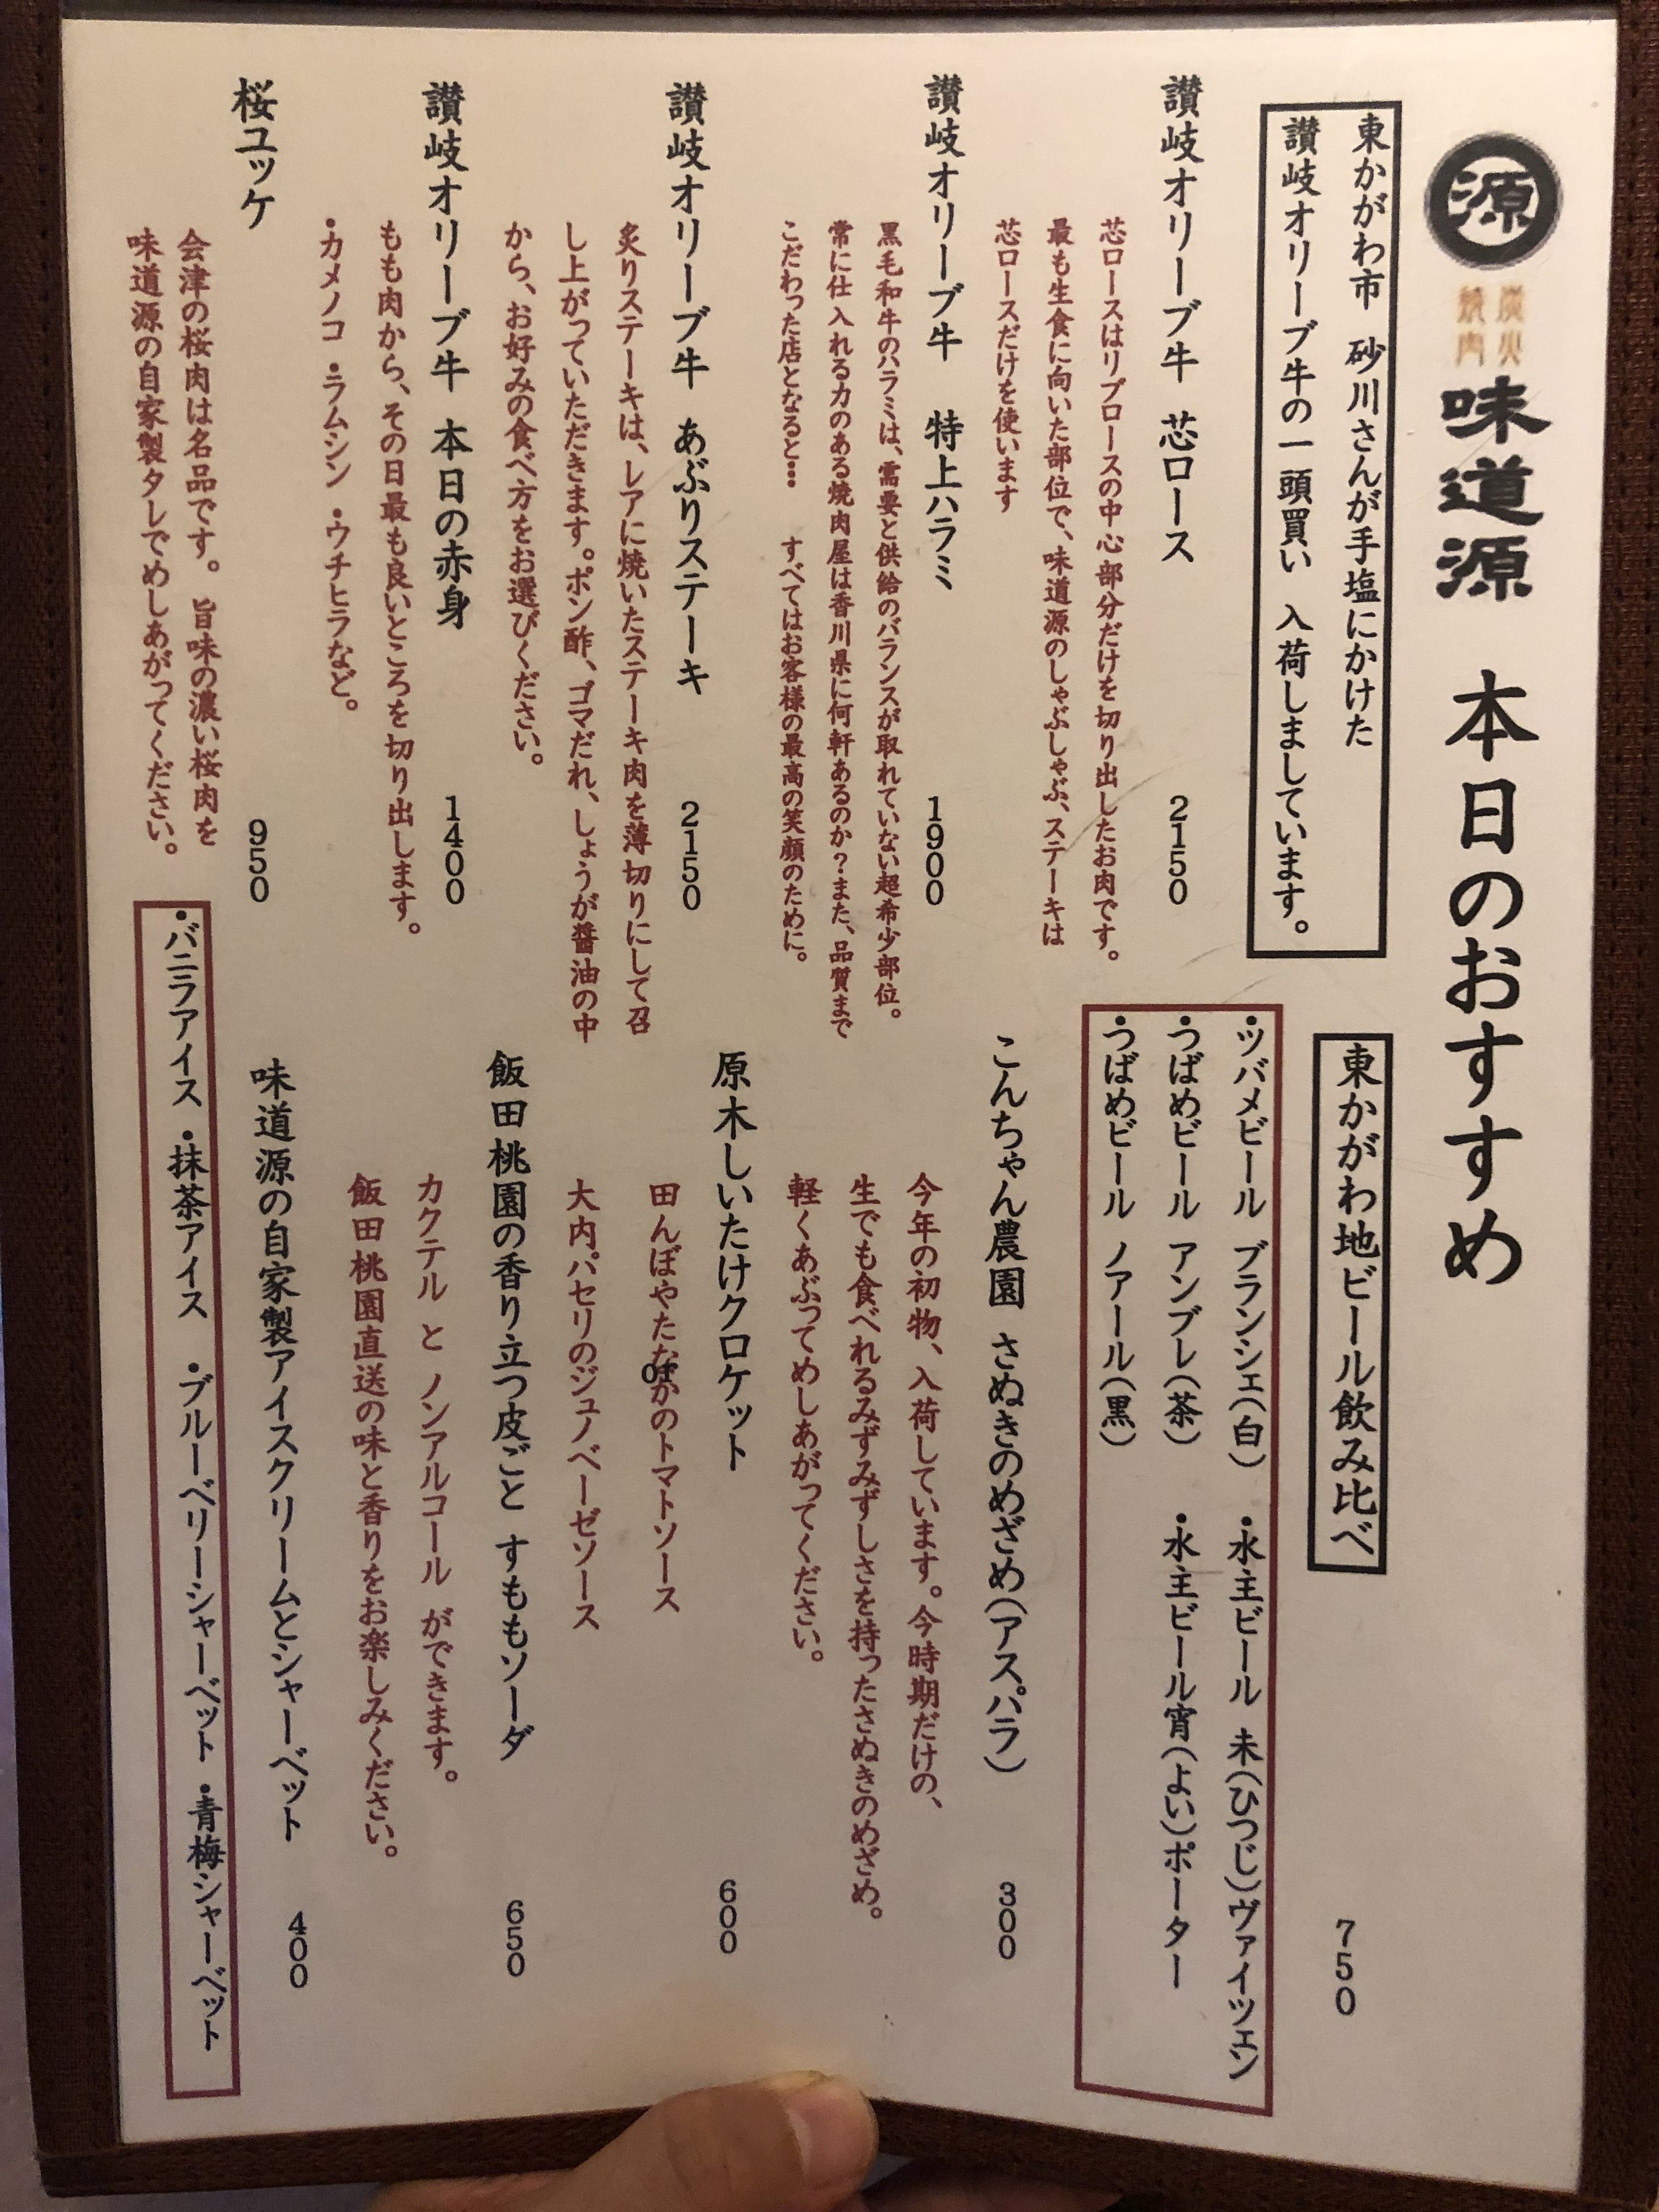 源
炭火
焼肉
味道源 本日のおすすめ
東かがわ市 砂川さんが手塩にかけた
讃岐オリーブ牛の一頭買い 入荷しましています。
讃岐オリーブ牛 芯ロース 2150
芯ロースはリブロースの中心部分だけを切り出したお肉です。
最も生食に向いた部位で、味道源のしゃぶしゃぶ、ステーキは
芯ロースだけを使います
讃岐オリーブ牛 特上ハラミ 1900
黒毛和牛のハラミは、需要と供給のバランスが取れていない超希少部位。
常に仕入れる力のある焼肉屋は香川県に何軒あるのか?また、品質まで
こだわった店となると… すべてはお客様の最高の笑顔のために。
讃岐オリーブ牛 あぶりステーキ 2150
炙りステーキは、レアに焼いたステーキ肉を薄切りにして召
し上がっていただきます。ポン酢、ゴマだれ、しょうが醤油の中
から、お好みの食べ方をお選びください。
讃岐オリーブ牛 本日の赤身 1400
もも肉から、その日最も良いところを切り出します。
・カメノコ ・ラムシン ・ウチヒラなど。
桜ユッケ 950
会津の桜肉は名品です。旨味の濃い桜肉を
味道源の自家製タレでめしあがってください。
東かがわ地ビール飲み比べ 750
・ツバメビール ブランシェ(白) ・水主ビール 未(ひつじ)ヴァイツェン
・つばめビール アンブレ(茶) ・水主ビール宵(よい)ポーター
・つばめビール ノアール(黒)
こんちゃん農園 さぬきのめざめ(アスパラ) 300
今年の初物、入荷しています。今時期だけの、
生でも食べれるみずみずしさを持ったさぬきのめざめ。
軽くあぶってめしあがってください。
原木しいたけクロケット 600
田んぼやたなかのトマトソース
or
大内パセリのジュノベーゼソース
飯田桃園の香り立つ皮ごと すももソーダ 650
カクテル と ノンアルコール ができます。
飯田桃園直送の味と香りをお楽しみください。
味道源の自家製アイスクリームとシャーベット 400
・バニラアイス ・抹茶アイス ・ブルーベリーシャーベット ・青梅シャーベット